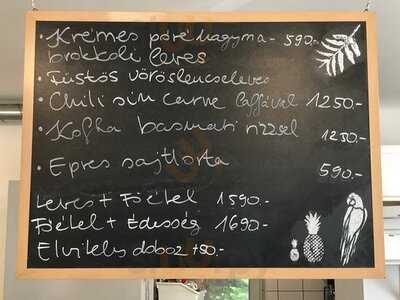 • Krémes póréhagyma- 590.-
brokkoli leves
• Füstös vöröslencseleves
• Chili sin carne laffával 1250.-
• Kofka basmati rizzsel 1250.-
• Epres sajttorta 590.-
Leves + Főétel 1590.-
Főétel + Édesség 1690.-
Elviteles doboz +50.-